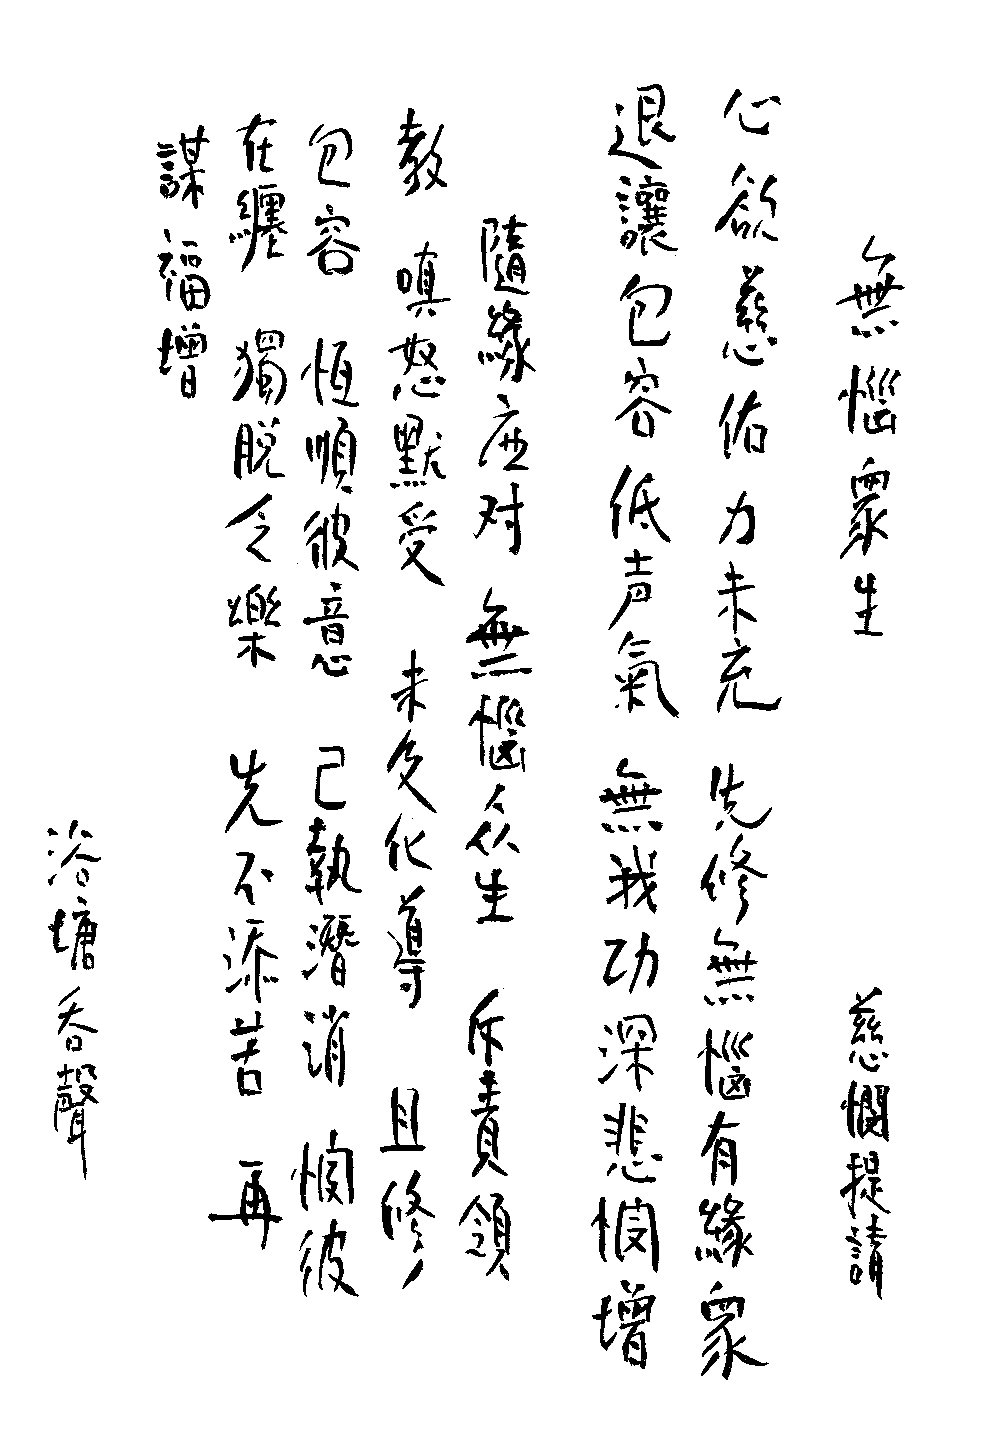 無惱眾生 慈憫提請
心欲慈佑 力未充 先修無惱有緣眾
退讓包容低声氣 無我功深悲憫增
隨緣应对 無惱众生 斥責領
教 嗔怒默受 未及化導 且修
包容 恆順彼意 己執潛消 憫彼
在纏 獨脫令樂 先不添苦 再
謀福增
浴塘吞聲